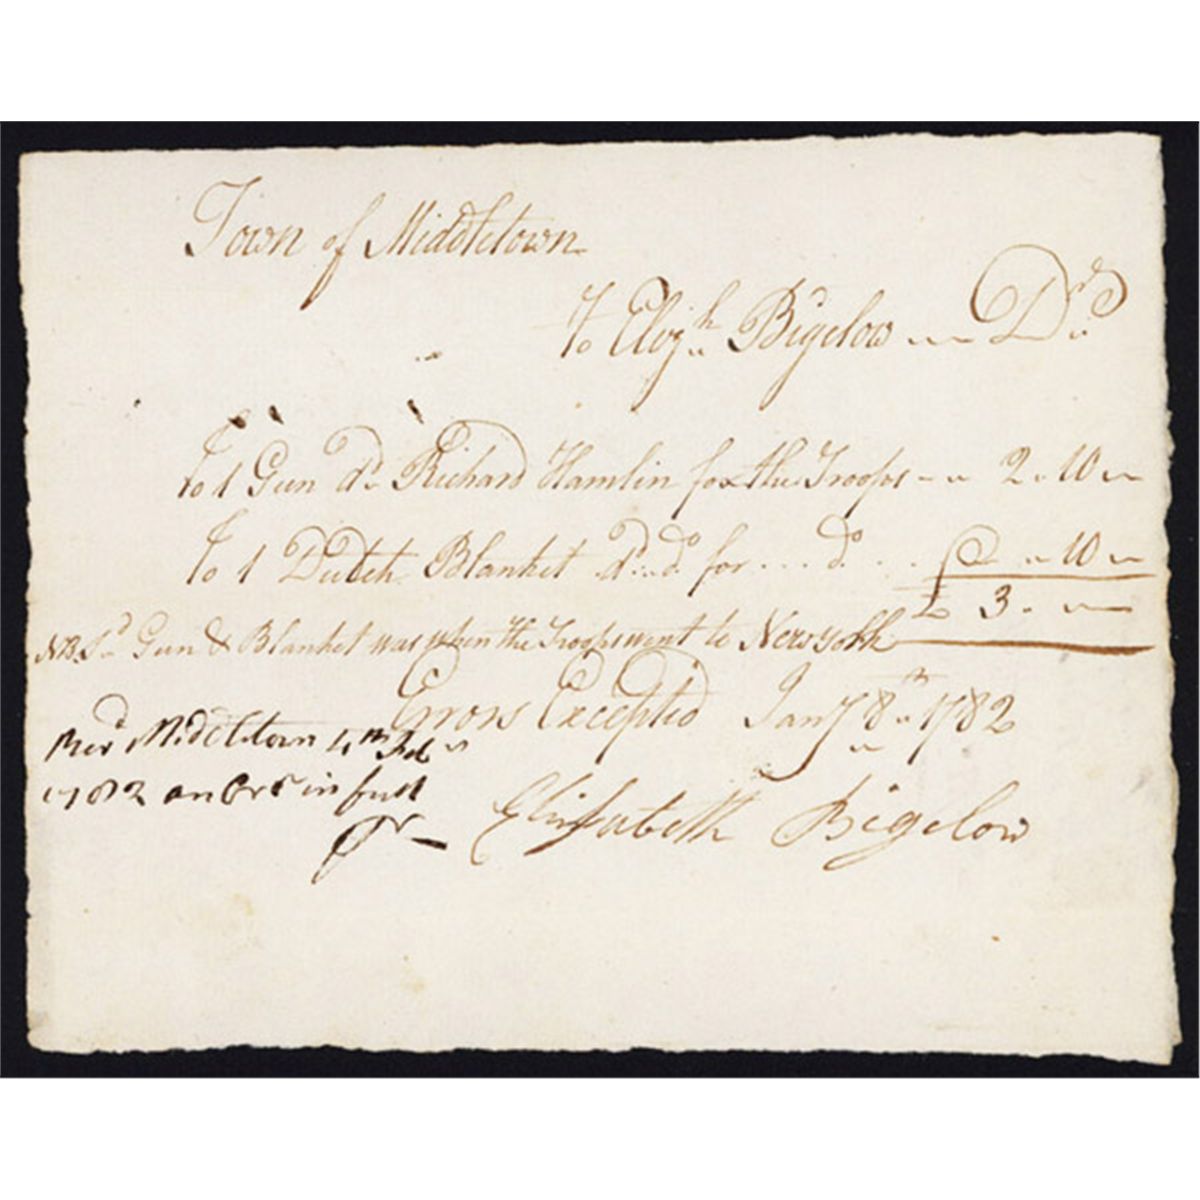 Town of Middletown
To Elizh Bigelow Dr
To 1 Gun dd Richard Hamlin for the Troops 2 . 10 "
To 1 Dutch Blanket dd do for . . . do . . " 10 "
£ 3 . "
NB Sd Gun & Blanket was when the Troops went to New york
Errors Excepted Jany 8th 1782
Recd Middletown 4th Feb
1782 an Ordr in full
Pr Elisabeth Bigelow